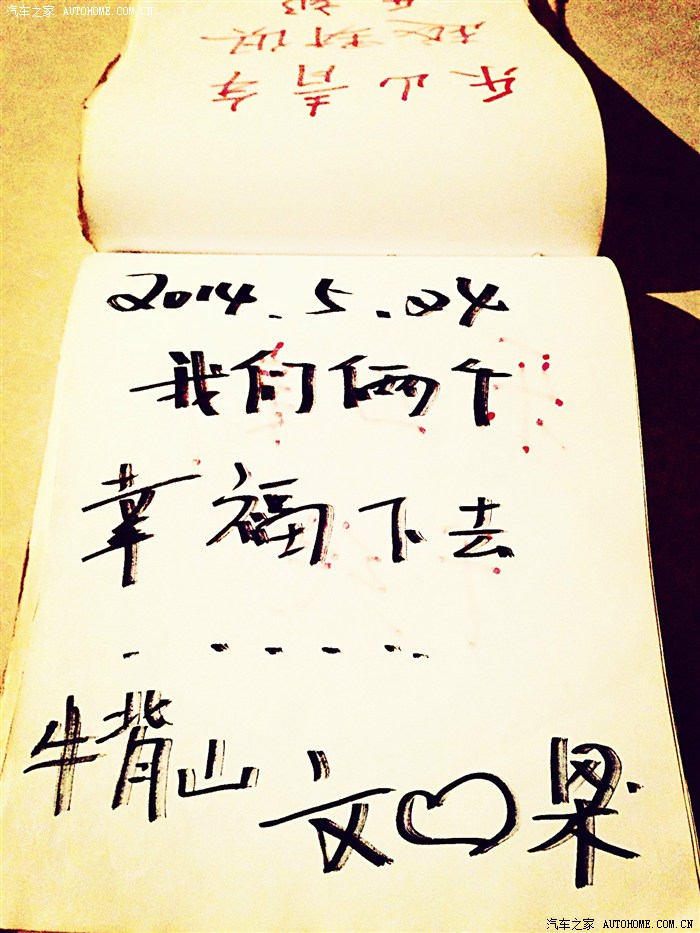 汽车之家 AUTOHOME.COM.CN
2014.5.24
我们俩个
幸福下去
......
牛背山 文♡果
汽车之家 AUTOHOME.COM.CN